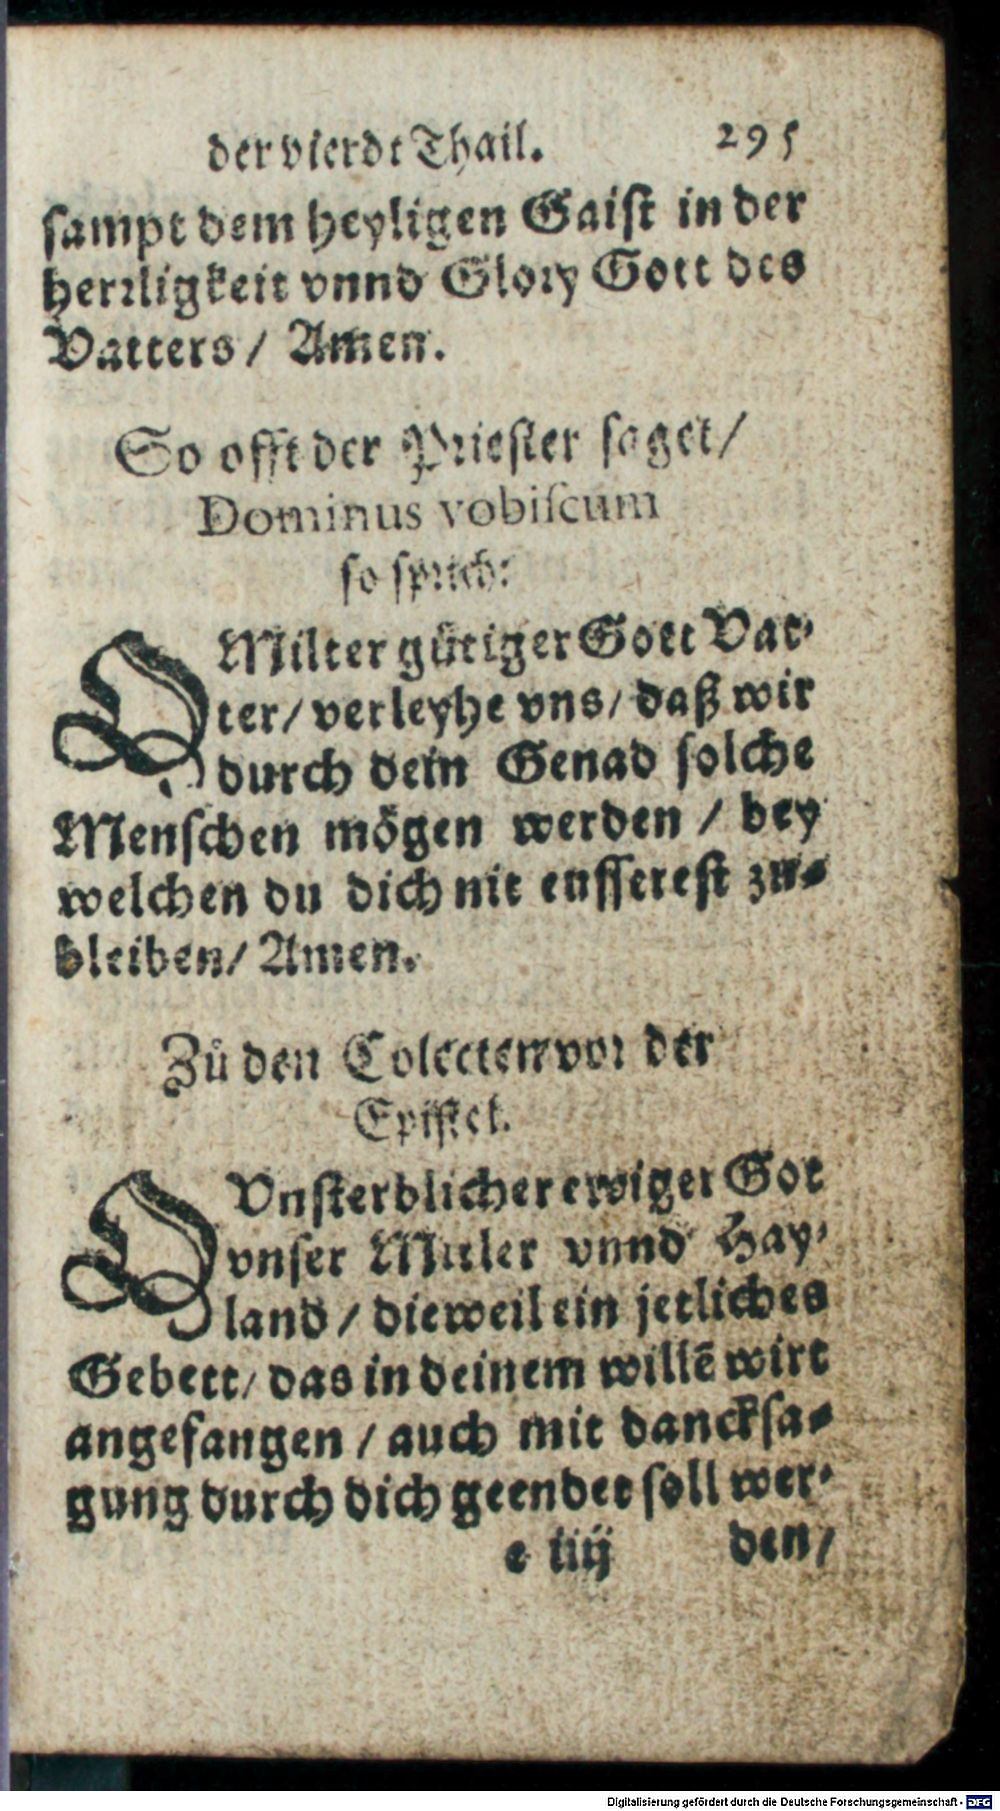 der vierdt Thail. 295
sampt dem heyligen Gaist in der
herrligkeit vnnd Glory Gott des
Vatters / Amen.
So offt der Priester saget /
Dominus vobiscum
so sprich:
O Milter gütiger Gott Vat-
ter / verleyhe vns / daß wir
durch dein Genad solche
Menschen mögen werden / bey
welchen du dich nit eusserest zu-
bleiben / Amen.
Zů den Colecten vor der
Epistel.
O Vnsterblicher ewiger Got
vnser Mitler vnnd Hay-
land / dieweil ein jetliches
Gebett / das in deinem willē wirt
angefangen / auch mit dancksa-
gung durch dich geendet soll wer-
e iiij den /
Digitalisierung gefördert durch die Deutsche Forschungsgemeinschaft - DFG